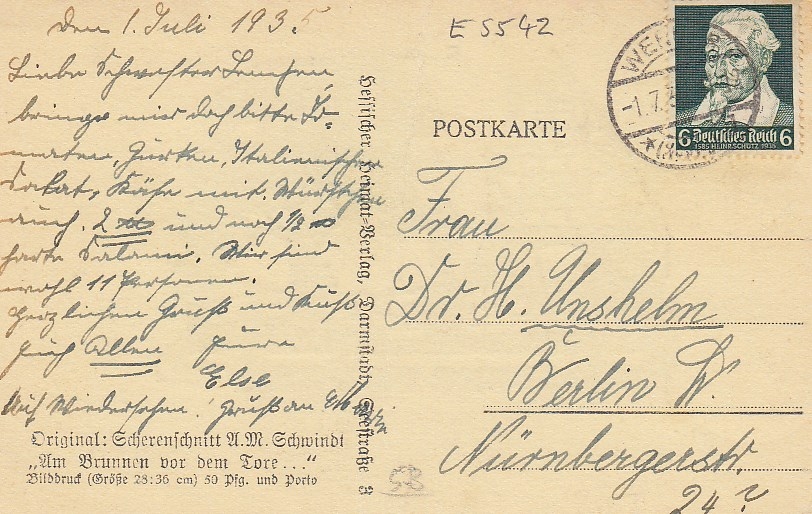 Den 1. Juli 1935
Liebe Schwester
bringe mir doch bitte To-
maten, Gurken, Italienischen
Salat, Käse mit. Würstchen
auch. 2 und noch 1/2
harte Salami. Wir sind
wohl 11 Personen.
Herzlichen Gruß und Kuß
Euch Allen Eure
Else
Auf Wiedersehen! Gruß an
Original: Scherenschnitt A. M. Schwindt
„Am Brunnen vor dem Tore..."
Bilddruck (Größe 28:36 cm) 50 Pfg. und Porto
Hessischer Heimat-Verlag, Darmstadt, Seestraße 3
E 5542
POSTKARTE
WER
-1.7.3
6 Deutsches Reich 6
1585 HEINR. SCHÜTZ 1935
Frau
Dr. H. Unshelm
Berlin W.
Nürnbergerstr.
24
53